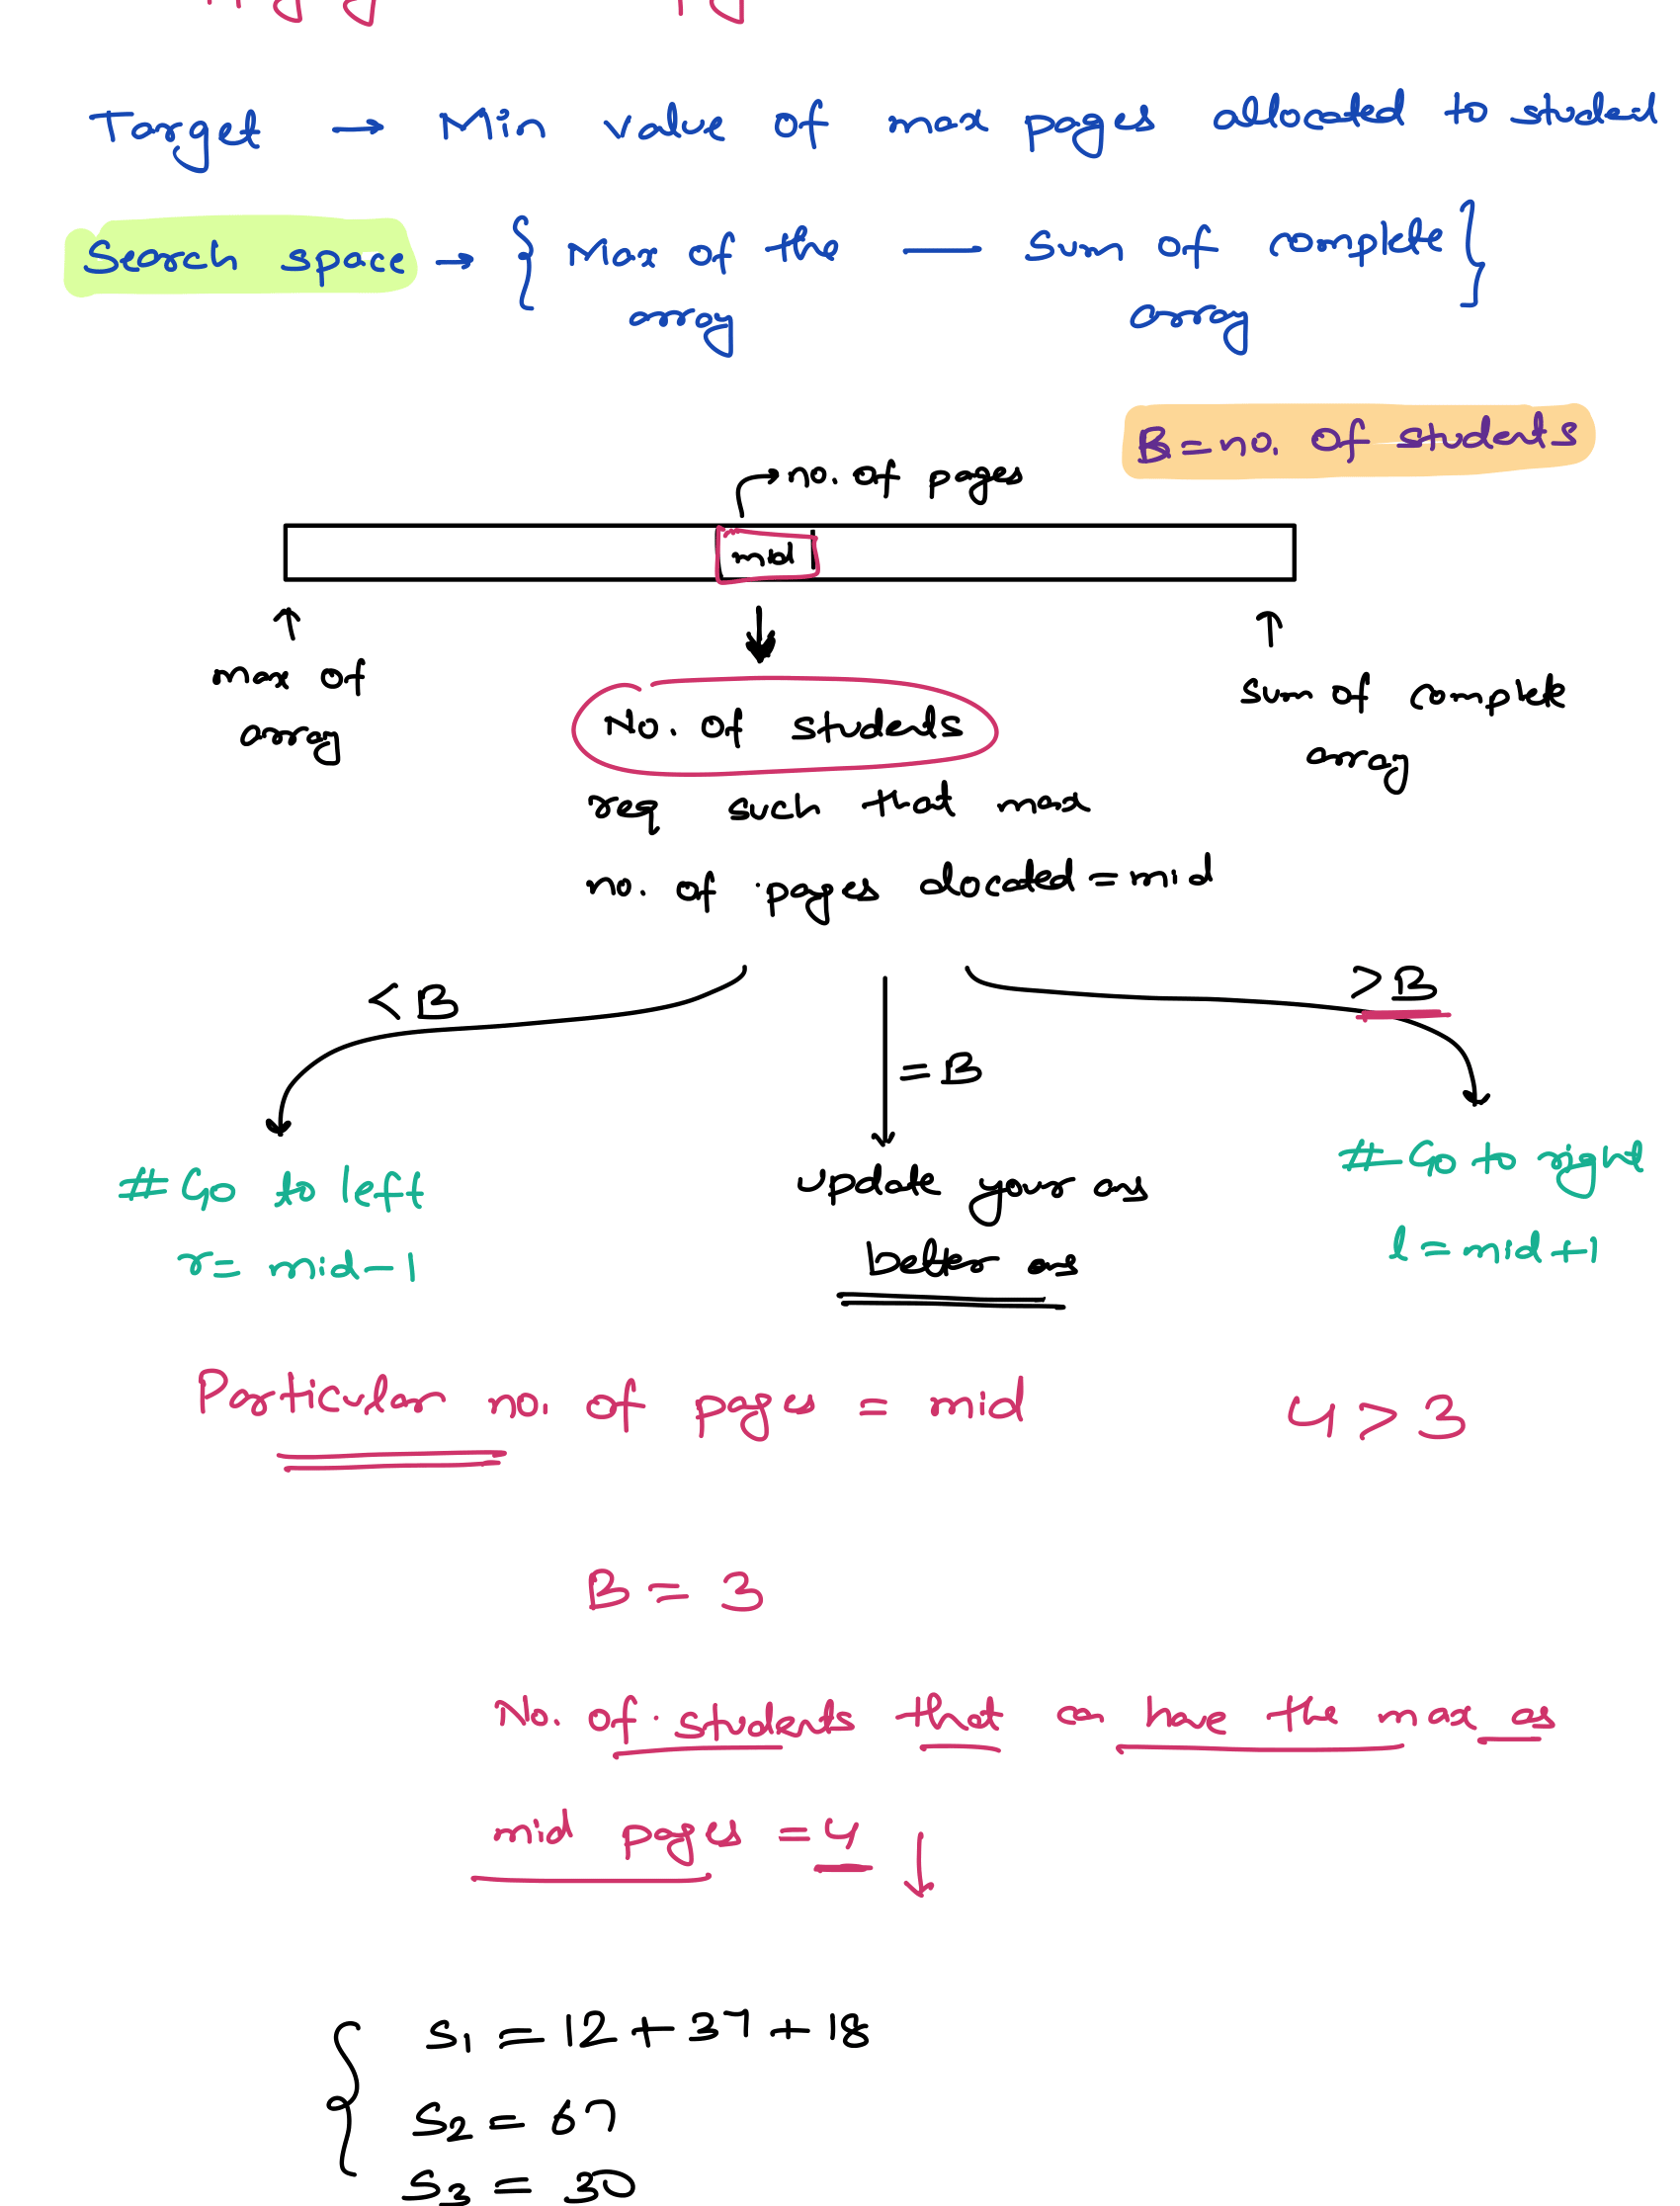 Target → Min value of max pages allocated to student
Search space → { Max of the array — Sum of complete array }
B = no. of students
→ no. of pages
mid
max of array
sum of complete array
No. of students
req such that max
no. of pages alocated = mid
< B
= B
> B
# Go to left
r = mid - 1
update your ans
better ans
# Go to right
l = mid + 1
Particular no. of pages = mid
4 > 3
B = 3
No. of students that can have the max as
mid pages = 4 ↓
S1 = 12 + 37 + 18
S2 = 67
S3 = 30